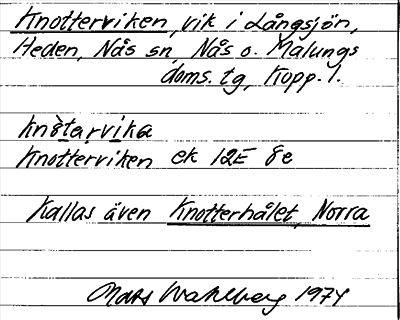 Knotterviken, vik i Långsjön,
Heden, Nås sn, Nås o. Malungs
doms. tg, Kopp. l.
knòtarvika
Knotterviken ek 12E 8e
Kallas även Knotterhålet, Norra
Mats Wahlberg 1974